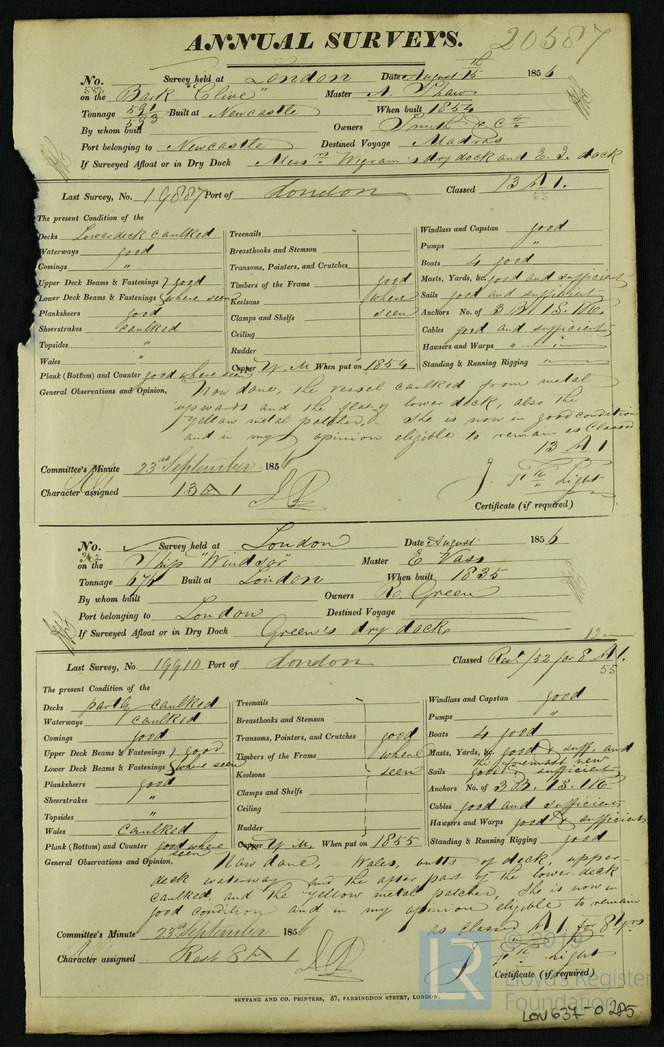 ANNUAL SURVEYS.
20587
No. 587 Survey held at London Date August 15th 1856
on the Bark "Clive" Master A. Shaw
Tonnage 591 593 Built at Newcastle When built 1854
By whom built Owners Smith & Co
Port belonging to Newcastle Destined Voyage Madras
If Surveyed Afloat or in Dry Dock Messrs Wigram's dry dock and E. I. dock
Last Survey, No. 19887 Port of London Classed 13 A 1.
55
The present Condition of the
Decks Lowerdeck caulked
Waterways good
Comings "
Upper Deck Beams & Fastenings } good
Lower Deck Beams & Fastenings } where seen
Planksheers good
Sheerstrakes caulked
Topsides "
Wales "
Plank (Bottom) and Counter good where seen
Treenails
Breasthooks and Stemson
Transoms, Pointers, and Crutches
Timbers of the Frame good
Keelsons where
Clamps and Shelfs seen
Ceiling
Rudder
Copper Y. M. When put on 1854
Windlass and Capstan good
Pumps "
Boats 4 good
Masts, Yards, &c. good and sufficient
Sails good and sufficient
Anchors No. of 3 B. 1 S. 1 K.
Cables good and sufficient
Hawsers and Warps " "
Standing & Running Rigging " "
General Observations and Opinion, Now done, the vessel caulked from metal
upwards and the flat of lower deck, also the
Yellow metal patched, She is now in good condition
and in my opinion eligible to remain as Classed
13 A 1
Committee's Minute 23rd September 1856
Character assigned 13 A 1
J. Light
Certificate (if required)
No. Survey held at London Date August 1856
on the Ship "Windsor" Master E Vass
Tonnage Built at London When built 1835
By whom built Owners R. Green
Port belonging to London Destined Voyage
If Surveyed Afloat or in Dry Dock Green's dry dock
Last Survey, No. 19910 Port of London Classed Rest /52 for 8 A 1.
55
The present Condition of the
Decks partly caulked
Waterways caulked
Comings good
Upper Deck Beams & Fastenings } good
Lower Deck Beams & Fastenings } where seen
Planksheers good
Sheerstrakes "
Topsides "
Wales caulked
Plank (Bottom) and Counter good where seen
Treenails
Breasthooks and Stemson
Transoms, Pointers, and Crutches good
Timbers of the Frame where
Keelsons seen
Clamps and Shelfs
Ceiling
Rudder
Copper Y. M. When put on 1855
Windlass and Capstan good
Pumps "
Boats 4 good
Masts, Yards, &c. good & suff. and
the foremast new
Sails good & sufficient
Anchors No. of 3 B. 1 S. 1 K
Cables good and sufficient
Hawsers and Warps good & sufficient
Standing & Running Rigging good
General Observations and Opinion, Now done, Wales, butts of deck, upper
deck waterway and the after part of the lower deck
caulked, and the yellow metal patched, She is now in
good condition and in my opinion eligible to remain
as classed A 1 for 8 yrs
Committee's Minute 23rd September 1856
Character assigned Rest 8 A 1
J. Light
Certificate (if required)
SKYFANG AND CO. PRINTERS, 57, FARRINGDON STREET, LONDON.
LR
© 2019
Lloyd's Register
Foundation
LON 637-0285